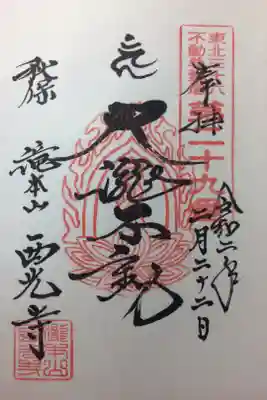 東北三十六
不動尊霊場
第二十九番
奉拝
令和二年
二月二十二日
大瀧不動
秋保
滝本山 西光寺